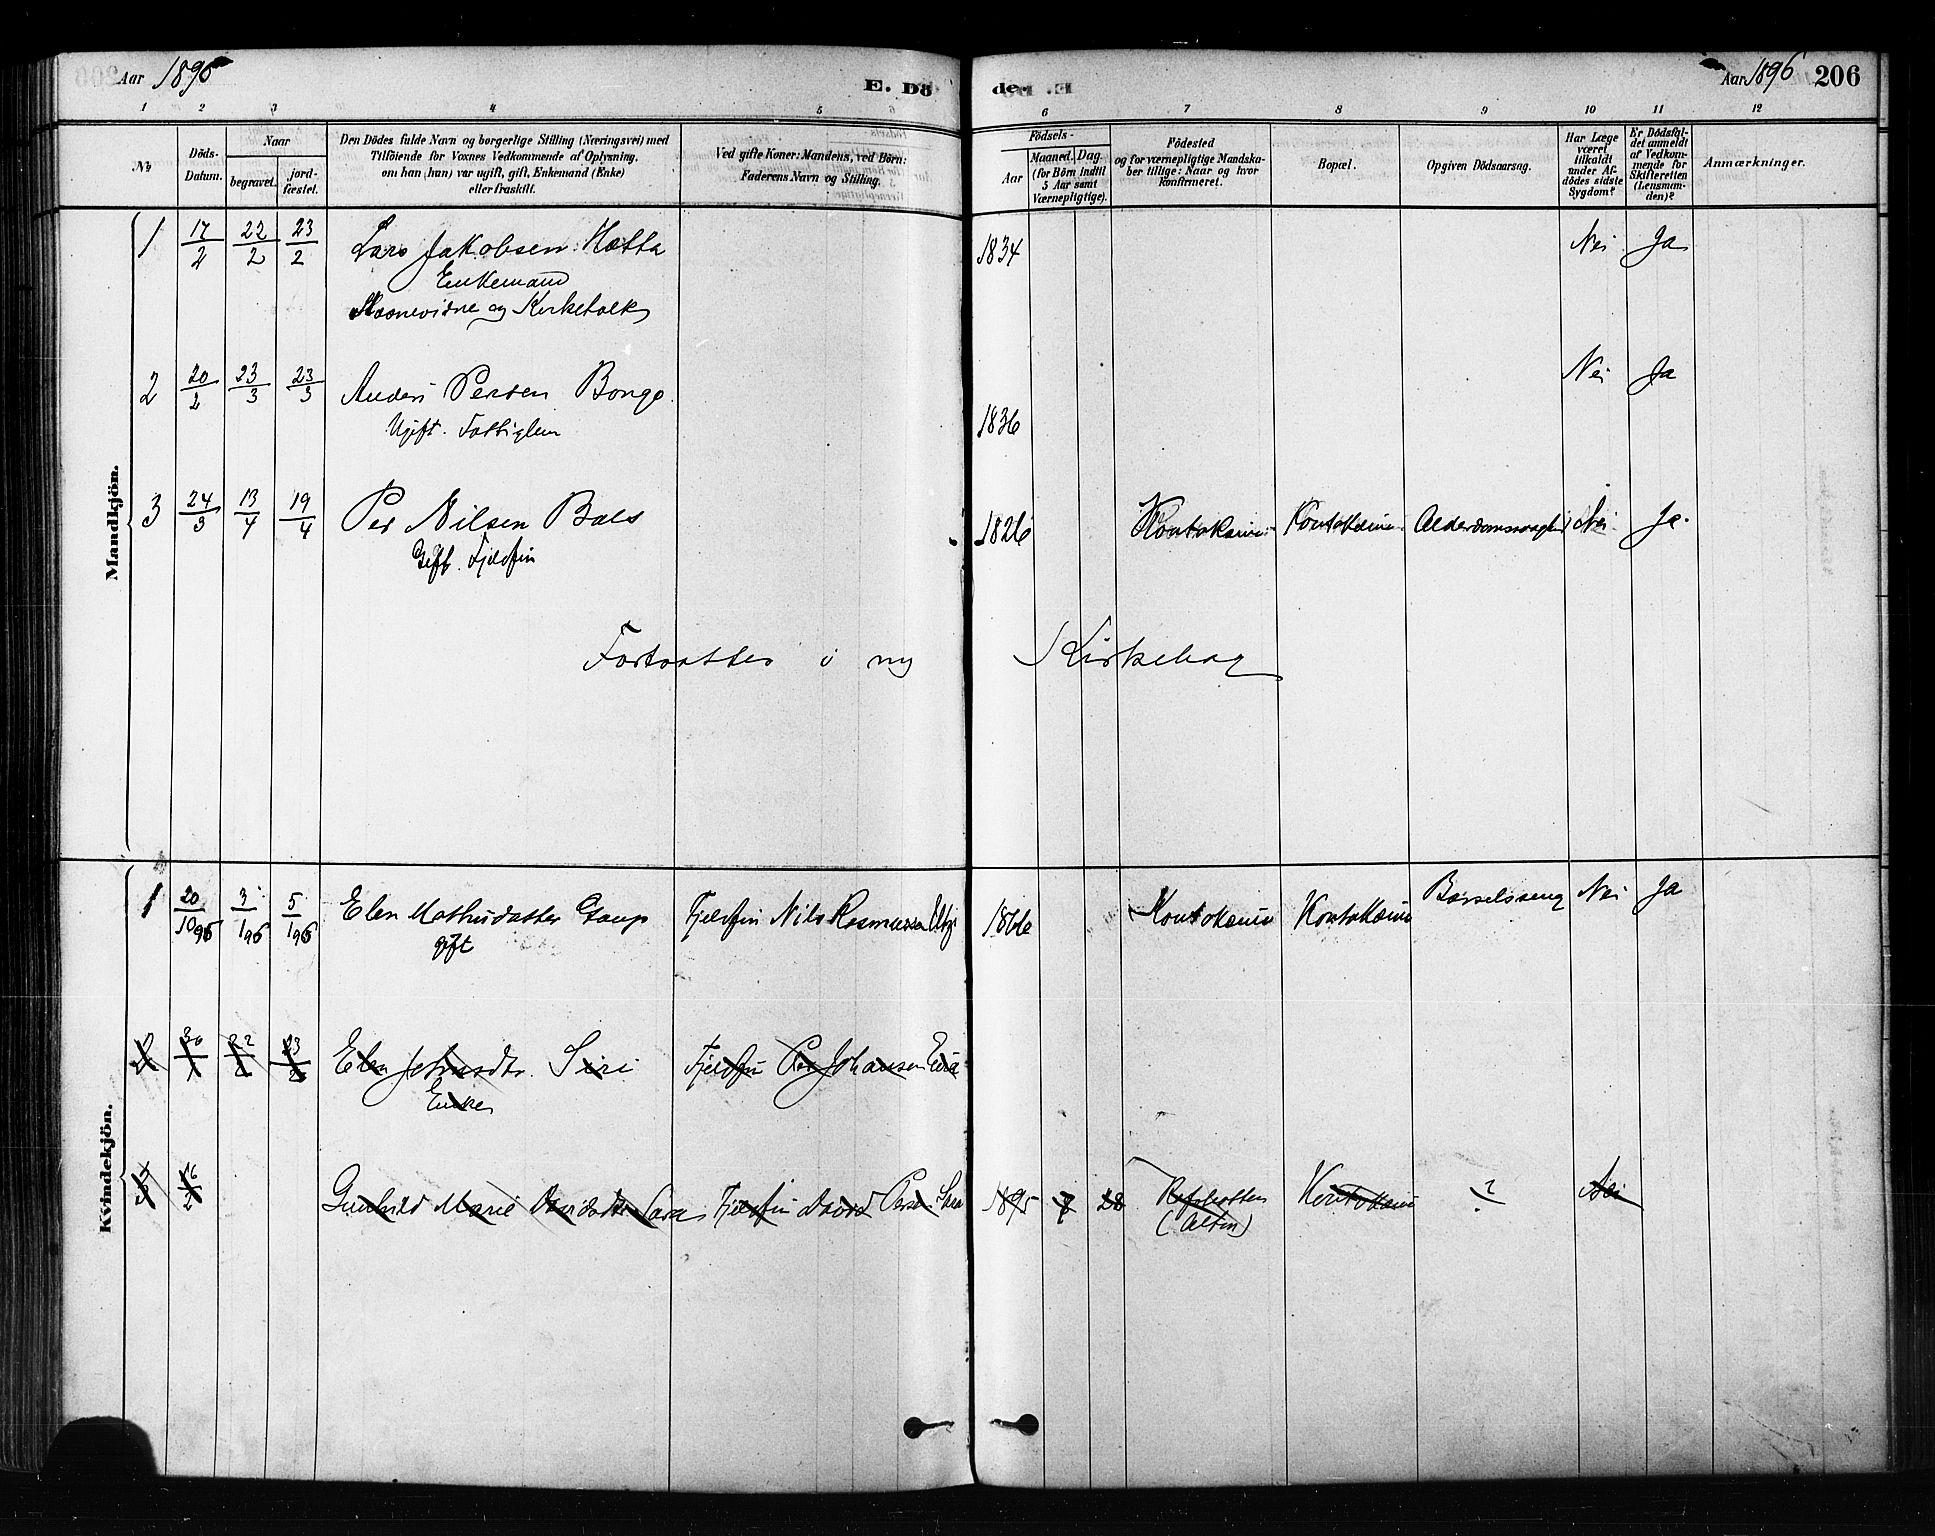 Aar 1896
E. Dö
de.
Aar 1896 206
1 2 3 4 5 6 7 8 9 10 11 12
No
Döds-Datum.
Naar
begravet.
jord-fæstet.
Den Dödes fulde Navn og borgerlige Stilling (Næringsvei) med
Tilföiende for Voxnes Vedkommende af Oplysning,
om han (hun) var ugift, gift, Enkemand (Enke)
eller fraskilt.
Ved gifte Koner: Mandens, ved Börn:
Faderens Navn og Stilling.
Födsels-
Aar
Maaned. Dag.
(for Börn indtil
5 Aar samt
Værnepligtige).
Födested
og for værnepligtige Mandska-
ber tillige: Naar og hvor
Konfirmeret.
Bopæl.
Opgiven Dödsaarsag.
Har Læge
været
tilkaldt
under Af-
dödes sidste
Sygdom?
Er Dödsfal-
det anmeldt
af Vedkom-
mende for
Skifteretten
(Lensman-
den)?
Anmærkninger.
Mandkjön.
1 17/2 22/2 23/2 Lars Jakobsen Hætta 1834 Nei Ja
Enkemand
og Kirketolk
2 20/2 23/3 23/3 Anders Persen Bongo 1836 Nei Ja
Ugift. Fattiglem
3 24/3 13/4 19/4 Per Nilsen Bals 1826 Koutokeino Koutokeino Alderdomssvaghed Nei Ja.
Gift. Fjeldfin
Fortsættes i ny Kirkebog
Kvindekjön.
1 20/10 96 3/1 96 5/1 96 Elen Mathisdatter Gaup Fjeldfin Nils Rasmussen 1866 Koutokeino Koutokeino Barselseng Nei Ja
gift
2 30/1 22/2 23/2 Elen Siri Fjeldfin Per Johansen Eira
Enke
3 16/2 Gunhild Marie Davidsdtr Sara Fjeldfin David Persen Sara 1895 28 Koutokeino ? Nei
(Alten)